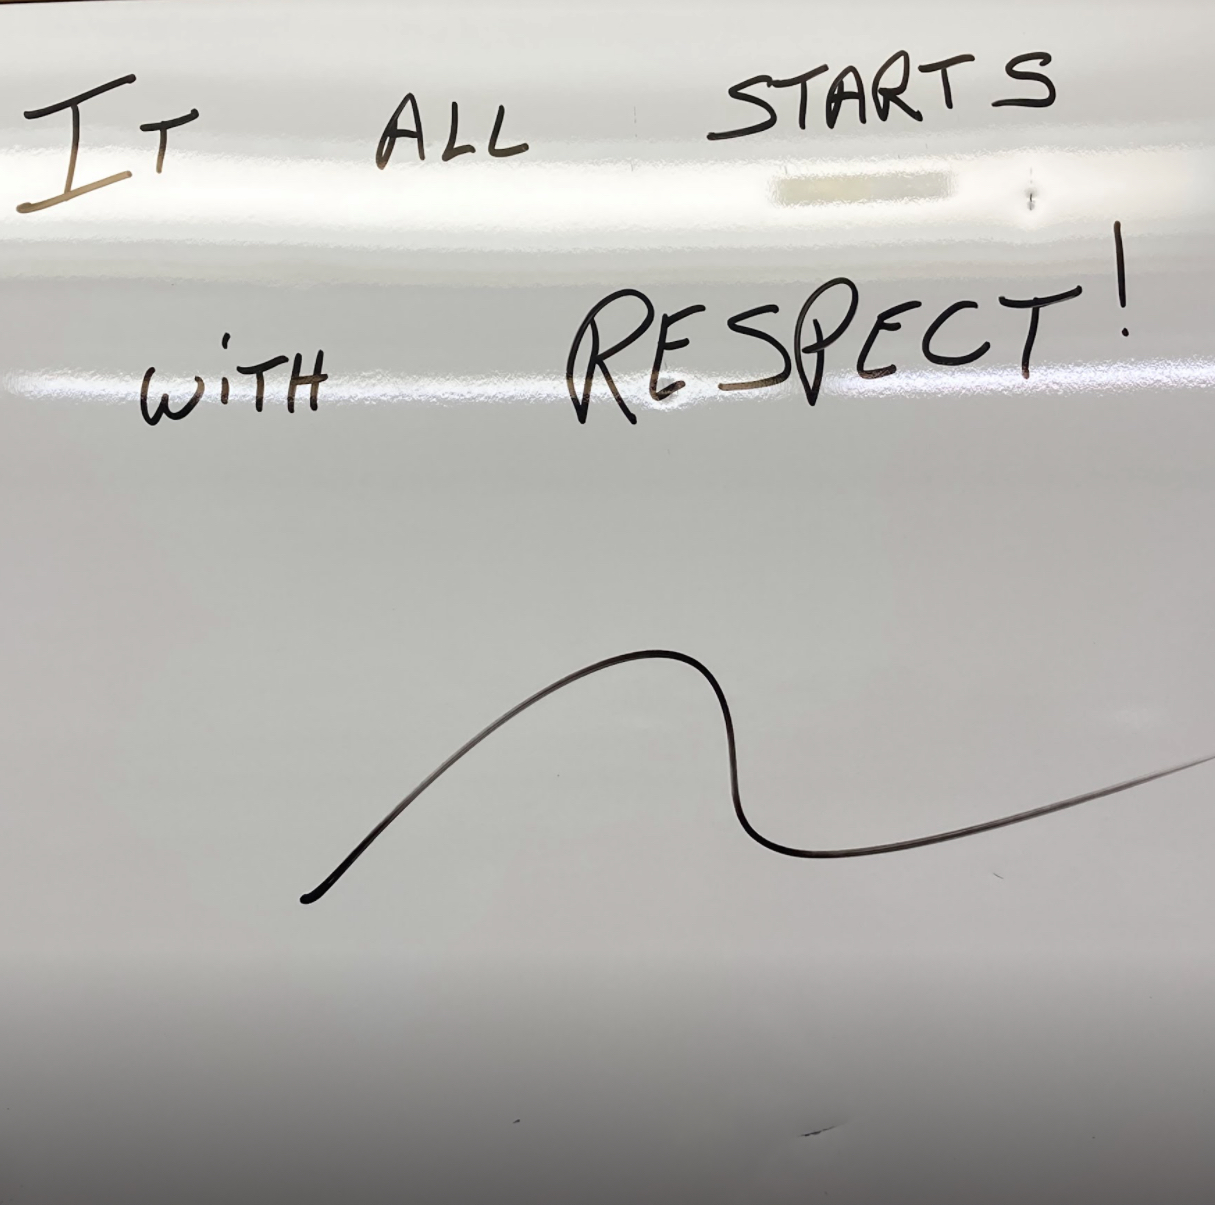 IT ALL STARTS
WiTH RESPECT!